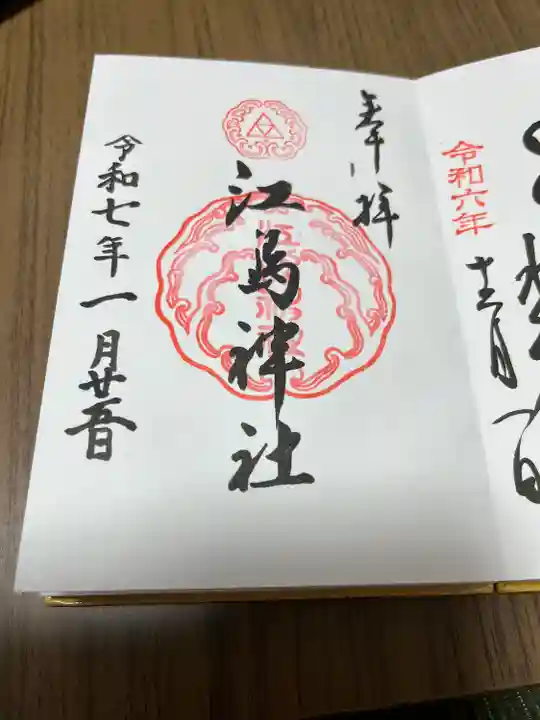 令和六年
奉拝
江島神社
令和七年一月廿五日